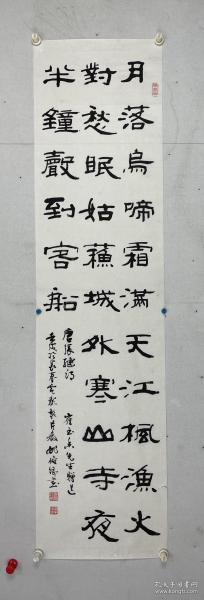 月落烏啼霜滿天江楓漁火
對愁眠姑蘇城外寒山寺夜
半鐘聲到客船
唐張繼詩